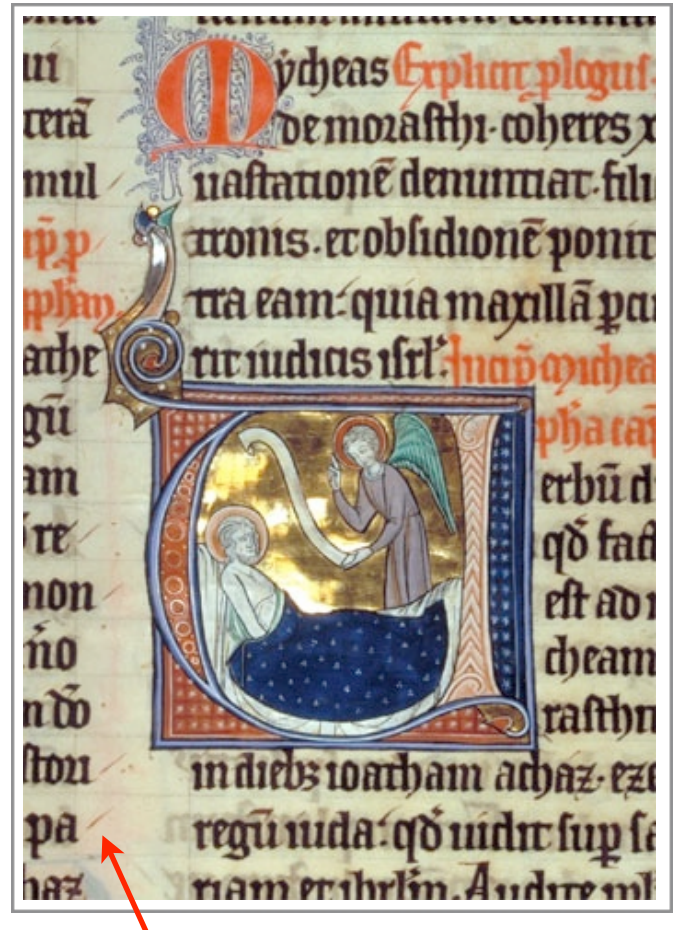 ui
terã
mul
athe
gũ
am
re
mon
ño
n dõ
stori
pa
haz
Mẏcheas Explicit plogus.
de morasthi· coheres x
uastationẽ denuntiat· fili
tronis· et obsidionẽ ponit
tra eam: quia maxillã pcu
rit iudicis isrl'. Incip̃ michea
pha cap
Verbũ d
qđ fact
est ad
cheam
rasthi
in diebꝫ ioatham achaz· eze
regũ iuda: qđ uidit sup sa
riam et ihrlm̃. Audite